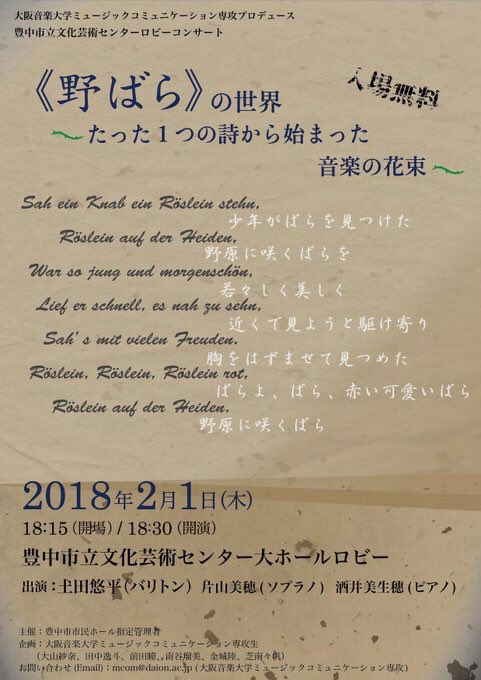 大阪音楽大学ミュージックコミュニケーション専攻プロデュース
豊中市立文化芸術センターロビーコンサート
入場無料
《野ばら》の世界
～たった1つの詩から始まった
音楽の花束～
Sah ein Knab ein Röslein stehn,
少年がばらを見つけた
Röslein auf der Heiden,
野原に咲くばらを
War so jung und morgenschön,
若々しく美しく
Lief er schnell, es nah zu sehn,
近くで見ようと駆け寄り
Sah's mit vielen Freuden.
胸をはずませて見つめた
Röslein, Röslein, Röslein rot,
ばらよ、ばら、赤い可愛いばら
Röslein auf der Heiden.
野原に咲くばら
2018年2月1日(木)
18:15(開場)/18:30(開演)
豊中市立文化芸術センター大ホールロビー
出演:圭田悠平(バリトン) 片山美穂(ソプラノ) 酒井美生穂(ピアノ)
主催:豊中市市民ホール指定管理者
企画:大阪音楽大学ミュージックコミュニケーション専攻生
(大山紗奈、田中逸斗、前田瞳、南谷瑠美、金城陸、芝南々帆)
お問い合わせ(Email):mcom@daion.ac.jp(大阪音楽大学ミュージックコミュニケーション専攻)